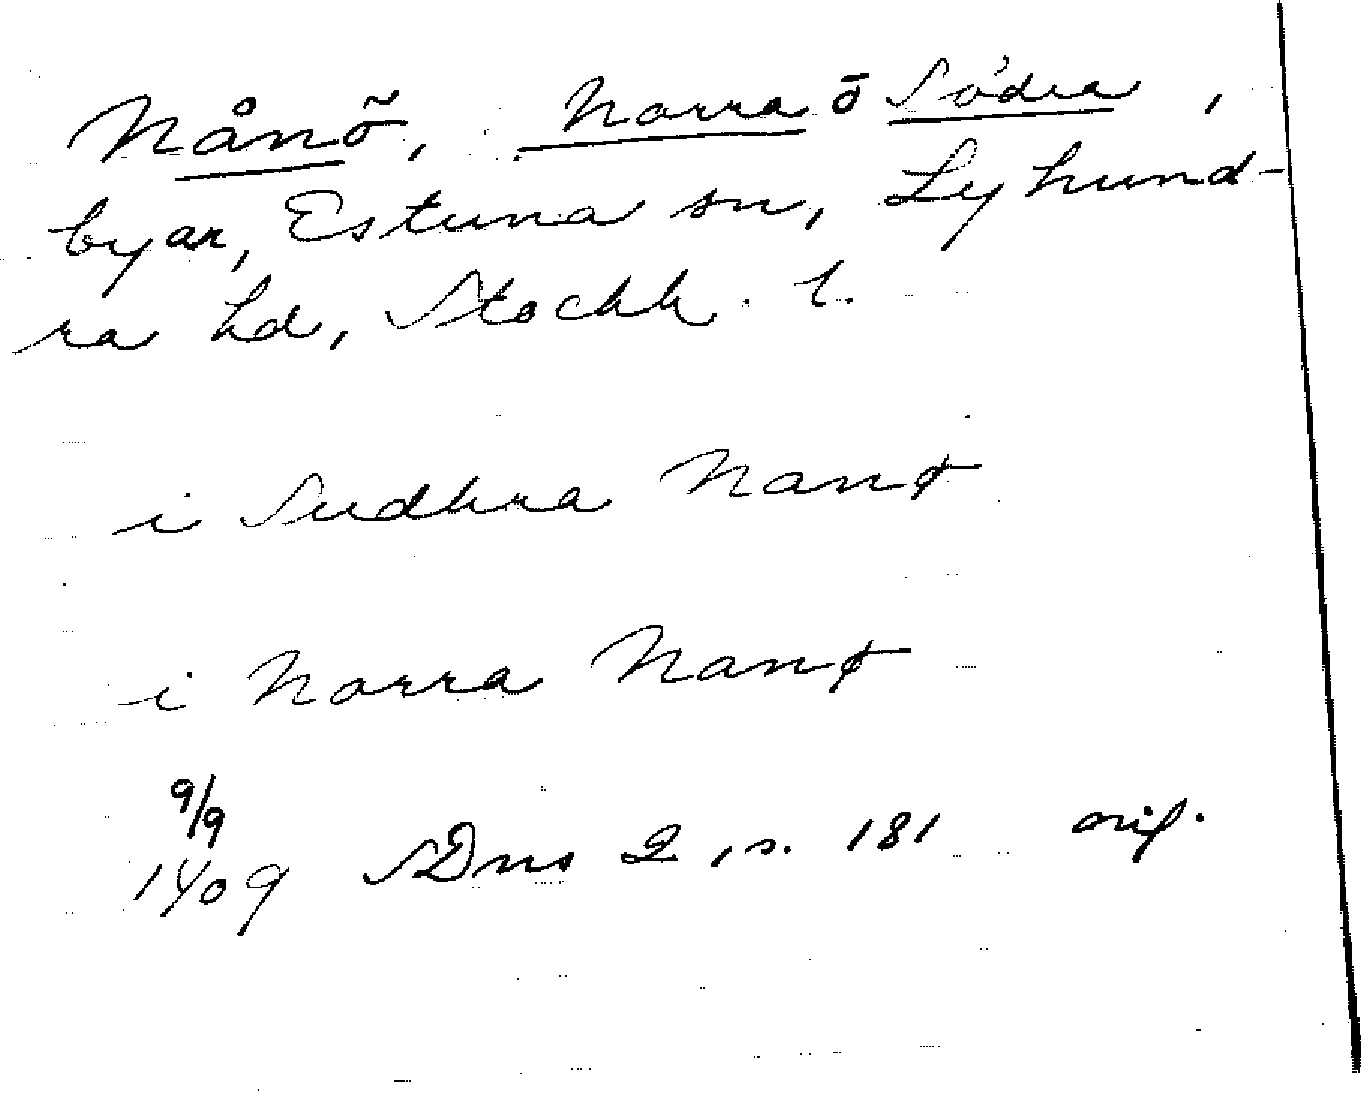 Nånö, Norra o Södra,
byar, Estuna sn, Lyhund-
ra hd, Stockh. l.
i Sudhra Nanø
i Norra Nanø
9/9
1409 SDns 2, s. 181 orig.